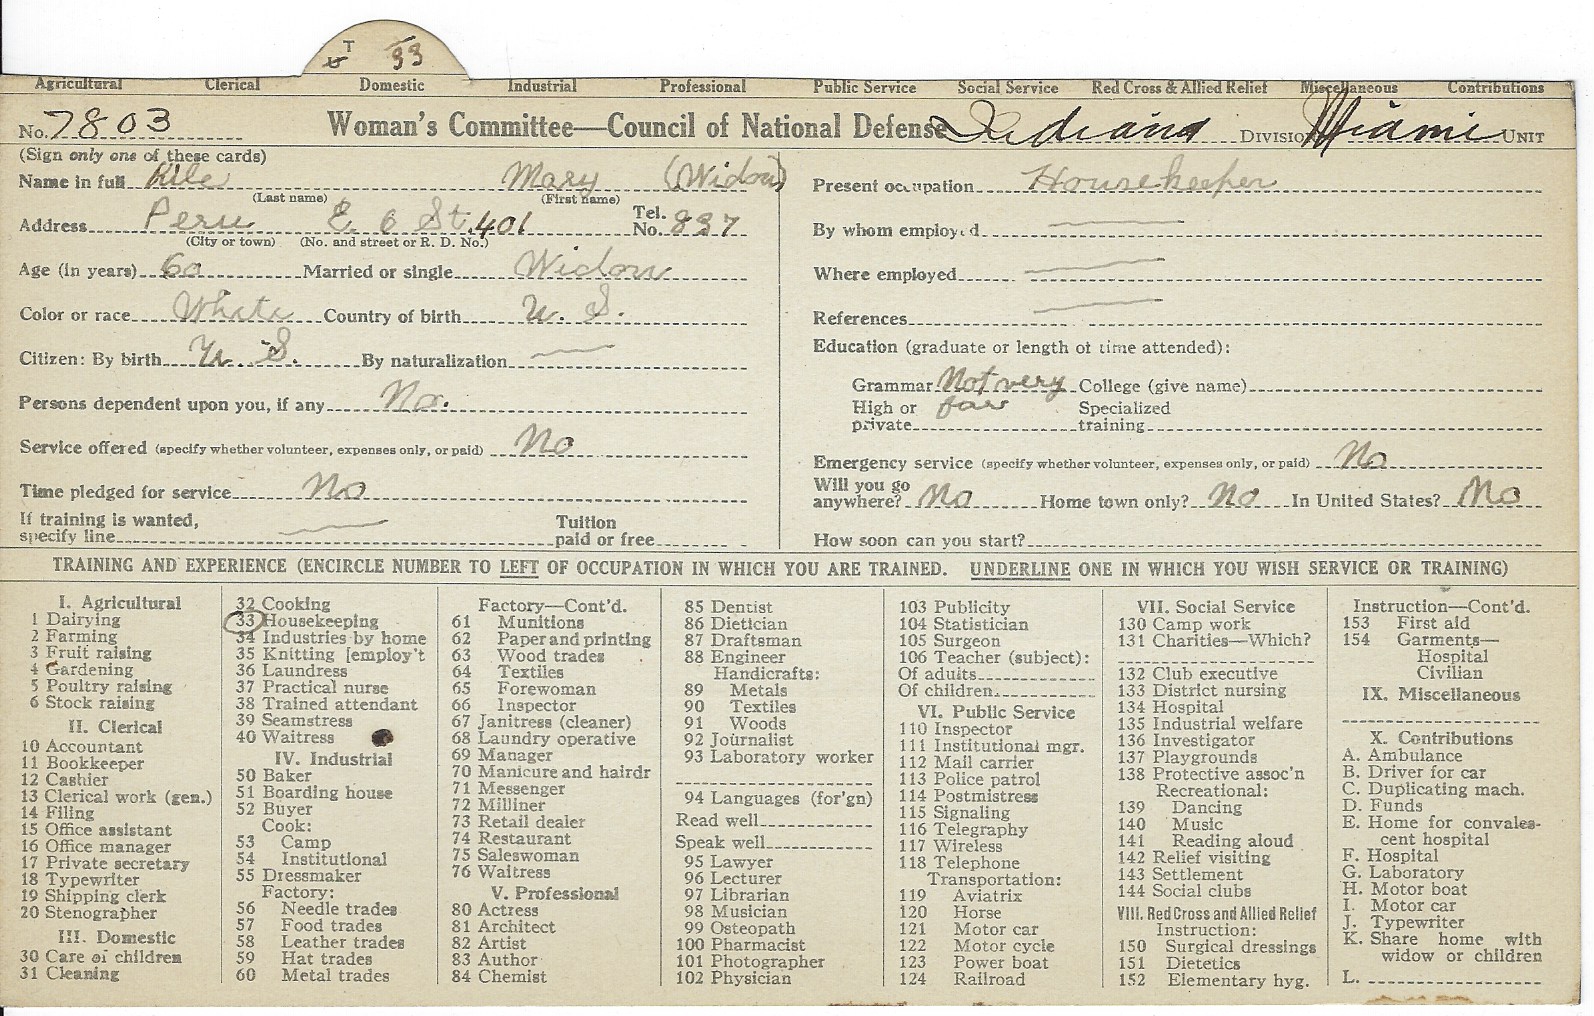 T 33
Agricultural Clerical Domestic Industrial Professional Public Service Social Service Red Cross & Allied Relief Miscellaneous Contributions
No. 7803 Woman's Committee—Council of National Defense Indiana Division Miami Unit
(Sign only one of these cards)
Name in full Kile Mary (Widow)
(Last name) (First name)
Address Peru E. 6 St. 401 Tel. No. 837
(City or town) (No. and street or R. D. No.)
Age (in years) 60 Married or single Widow
Color or race White Country of birth U. S.
Citizen: By birth U. S. By naturalization —
Persons dependent upon you, if any No.
Service offered (specify whether volunteer, expenses only, or paid) No
Time pledged for service No
If training is wanted, specify line — Tuition paid or free
Present occupation Housekeeper
By whom employed —
Where employed —
References —
Education (graduate or length of time attended):
Grammar Not very College (give name)
High or private fair Specialized training
Emergency service (specify whether volunteer, expenses only, or paid) No
Will you go anywhere? No Home town only? No In United States? No
How soon can you start?
TRAINING AND EXPERIENCE (ENCIRCLE NUMBER TO LEFT OF OCCUPATION IN WHICH YOU ARE TRAINED. UNDERLINE ONE IN WHICH YOU WISH SERVICE OR TRAINING)
I. Agricultural
1 Dairying
2 Farming
3 Fruit raising
4 Gardening
5 Poultry raising
6 Stock raising
II. Clerical
10 Accountant
11 Bookkeeper
12 Cashier
13 Clerical work (gen.)
14 Filing
15 Office assistant
16 Office manager
17 Private secretary
18 Typewriter
19 Shipping clerk
20 Stenographer
III. Domestic
30 Care of children
31 Cleaning
32 Cooking
33 Housekeeping
34 Industries by home
35 Knitting [employ't
36 Laundress
37 Practical nurse
38 Trained attendant
39 Seamstress
40 Waitress
IV. Industrial
50 Baker
51 Boarding house
52 Buyer
Cook:
53 Camp
54 Institutional
55 Dressmaker
Factory:
56 Needle trades
57 Food trades
58 Leather trades
59 Hat trades
60 Metal trades
Factory—Cont'd.
61 Munitions
62 Paper and printing
63 Wood trades
64 Textiles
65 Forewoman
66 Inspector
67 Janitress (cleaner)
68 Laundry operative
69 Manager
70 Manicure and hairdr
71 Messenger
72 Milliner
73 Retail dealer
74 Restaurant
75 Saleswoman
76 Waitress
V. Professional
80 Actress
81 Architect
82 Artist
83 Author
84 Chemist
85 Dentist
86 Dietician
87 Draftsman
88 Engineer
Handicrafts:
89 Metals
90 Textiles
91 Woods
92 Journalist
93 Laboratory worker
94 Languages (for'gn)
Read well
Speak well
95 Lawyer
96 Lecturer
97 Librarian
98 Musician
99 Osteopath
100 Pharmacist
101 Photographer
102 Physician
103 Publicity
104 Statistician
105 Surgeon
106 Teacher (subject):
Of adults
Of children
VI. Public Service
110 Inspector
111 Institutional mgr.
112 Mail carrier
113 Police patrol
114 Postmistress
115 Signaling
116 Telegraphy
117 Wireless
118 Telephone
Transportation:
119 Aviatrix
120 Horse
121 Motor car
122 Motor cycle
123 Power boat
124 Railroad
VII. Social Service
130 Camp work
131 Charities—Which?
132 Club executive
133 District nursing
134 Hospital
135 Industrial welfare
136 Investigator
137 Playgrounds
138 Protective assoc'n
Recreational:
139 Dancing
140 Music
141 Reading aloud
142 Relief visiting
143 Settlement
144 Social clubs
VIII. Red Cross and Allied Relief
Instruction:
150 Surgical dressings
151 Dietetics
152 Elementary hyg.
Instruction—Cont'd.
153 First aid
154 Garments—
Hospital
Civilian
IX. Miscellaneous
X. Contributions
A. Ambulance
B. Driver for car
C. Duplicating mach.
D. Funds
E. Home for convales-
cent hospital
F. Hospital
G. Laboratory
H. Motor boat
I. Motor car
J. Typewriter
K. Share home with
widow or children
L.